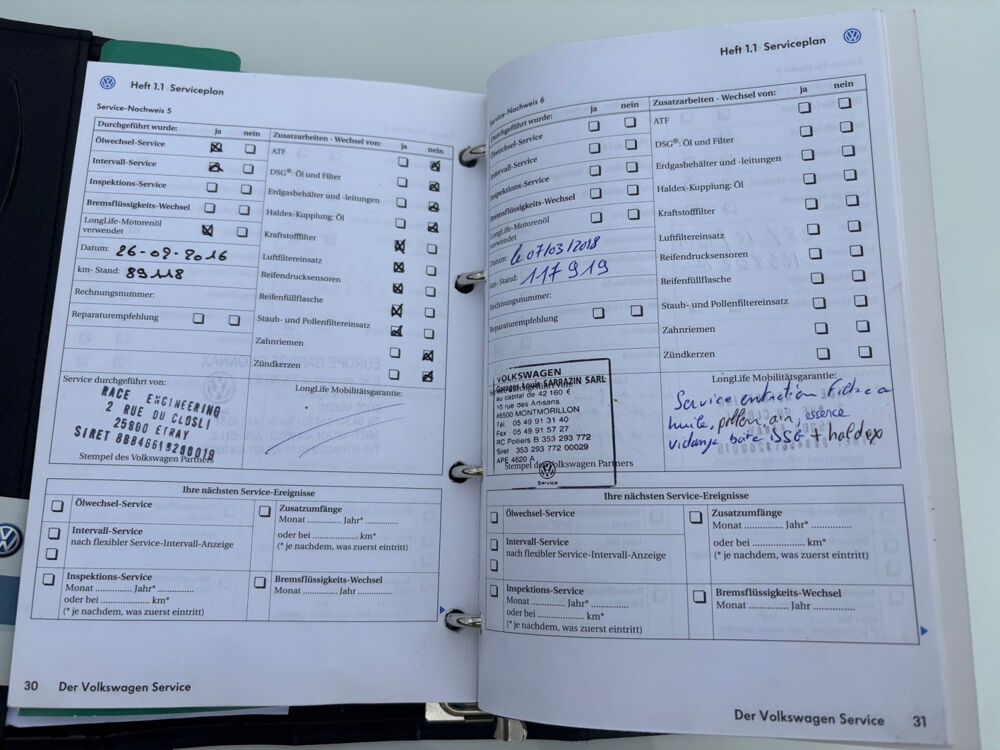 Heft 1.1 Serviceplan
Service-Nachweis 5
Durchgeführt wurde: ja nein
Ölwechsel-Service
Intervall-Service
Inspektions-Service
Bremsflüssigkeits-Wechsel
LongLife-Motorenöl
verwendet
Datum: 26-09-2016
km-Stand: 89118
Rechnungsnummer:
Reparaturempfehlung
Zusatzarbeiten - Wechsel von: ja nein
ATF
DSG®: Öl und Filter
Erdgasbehälter und -leitungen
Haldex-Kupplung: Öl
Kraftstofffilter
Luftfiltereinsatz
Reifendrucksensoren
Reifenfüllflasche
Staub- und Pollenfiltereinsatz
Zahnriemen
Zündkerzen
Service durchgeführt von:
RACE ENGINEERING
2 RUE DU CLOSLI
25800 ETRAY
Stempel des Volkswagen Partners
LongLife Mobilitätsgarantie:
Ihre nächsten Service-Ereignisse
Ölwechsel-Service
Intervall-Service
nach flexibler Service-Intervall-Anzeige
Inspektions-Service
Monat ............ Jahr* ............
oder bei .................. km*
(* je nachdem, was zuerst eintritt)
Zusatzumfänge
Monat ............ Jahr* ............
oder bei .................. km*
(* je nachdem, was zuerst eintritt)
Bremsflüssigkeits-Wechsel
Monat ............ Jahr ............
30 Der Volkswagen Service
Heft 1.1 Serviceplan
Service-Nachweis 6
Durchgeführt wurde: ja nein
Ölwechsel-Service
Intervall-Service
Inspektions-Service
Bremsflüssigkeits-Wechsel
LongLife-Motorenöl
verwendet
Datum: le 07/03/2018
km-Stand: 117 919
Rechnungsnummer:
Reparaturempfehlung
Zusatzarbeiten - Wechsel von: ja nein
ATF
DSG®: Öl und Filter
Erdgasbehälter und -leitungen
Haldex-Kupplung: Öl
Kraftstofffilter
Luftfiltereinsatz
Reifendrucksensoren
Reifenfüllflasche
Staub- und Pollenfiltereinsatz
Zahnriemen
Zündkerzen
VOLKSWAGEN
Garages Louis SARRAZIN SARL
au capital de 42 160 €
10 rue des Artisans
86500 MONTMORILLON
Tél. 05 49 91 31 40
Fax 05 49 91 57 27
RC Poitiers B 353 293 772
Siret 353 293 772 00029
APE 4520 A
Service
Stempel des Volkswagen Partners
LongLife Mobilitätsgarantie:
Service entretien Filtre a
huile, pollen air, essence
vidange boite DSG + haldex
Ihre nächsten Service-Ereignisse
Ölwechsel-Service
Intervall-Service
nach flexibler Service-Intervall-Anzeige
Inspektions-Service
Monat ............ Jahr* ............
oder bei .................. km*
(* je nachdem, was zuerst eintritt)
Zusatzumfänge
Monat ............ Jahr* ............
oder bei .................. km*
(* je nachdem, was zuerst eintritt)
Bremsflüssigkeits-Wechsel
Monat ............ Jahr ............
Der Volkswagen Service 31